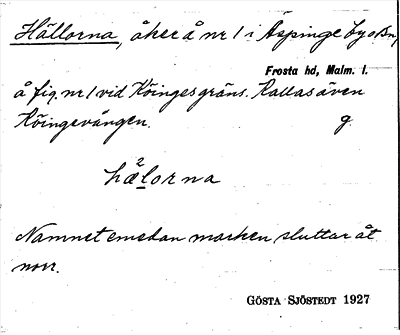 Hällorna, åker å nr 1 i Äspinge by o sn,
Frosta hd, Malm. l.
å fig. nr 1 vid Köinges gräns. Kallas även
Köingevången. g.
2
hælorna
Namnet emedan marken sluttar åt
norr.
GÖSTA SJÖSTEDT 1927